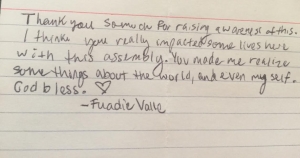 Thank you so much for raising awareness of this.
I think you really impacted some lives here
with this assembly. You made me realize
some things about the world, and even my self.
God bless. ♡
- Fuadie Valle